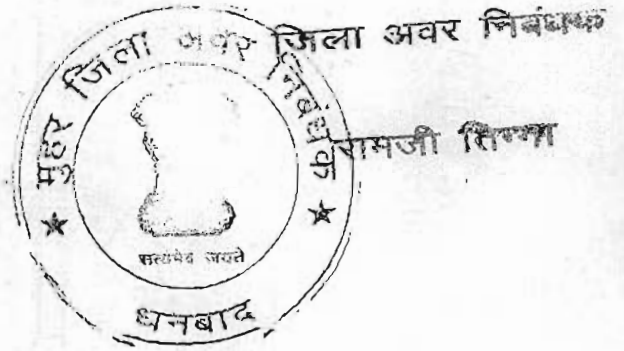 जिला अवर निबंधक
रामजी तिग्गा
मुहर जिला अवर निबंधक
सत्यमेव जयते
धनबाद